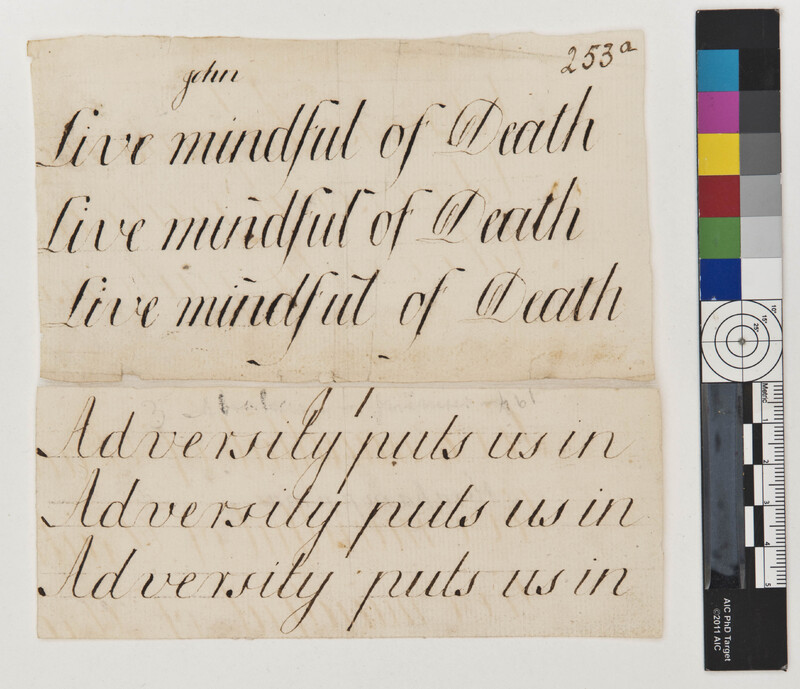 253a
john
Live mindful of Death
Live mindful of Death
Live mindful of Death
Adversity puts us in
Adversity puts us in
Adversity puts us in
10°
15°
25°
Metric
1
2
3
4
5
AIC PhD Target
©2011 AIC